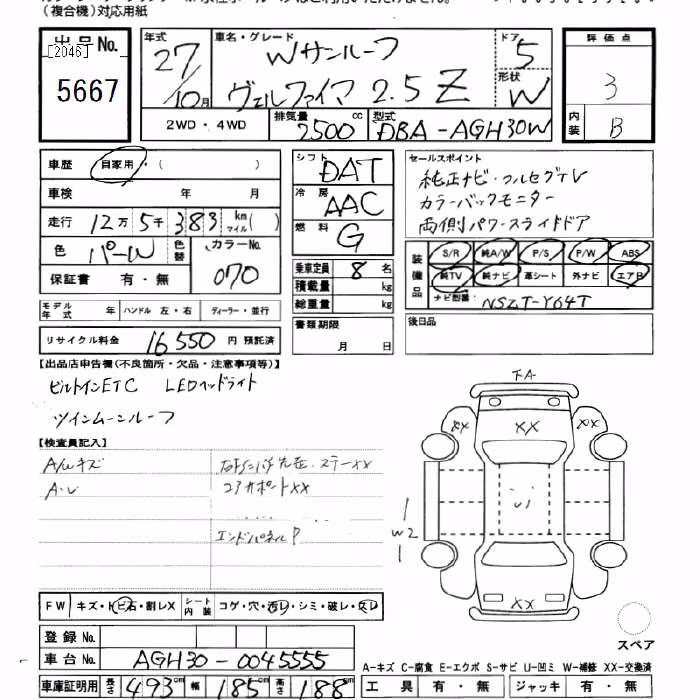 （複合機）対応用紙
出品No. [2046] 5667
年式 27 10月
車名・グレード Wサンルーフ
ヴェルファイア 2.5 Z
ドア 5
形状 W
評価点 3
内装 B
2WD・4WD 排気量 2500cc 型式 DBA-AGH30W
車歴 自家用・( )
車検 年 月
走行 12万5千383km マイル( )
色 パール 色替 カラーNo. 070
保証書 有・無
シフト DAT
冷房 AAC
燃料 G
乗車定員 8名
積載量 kg
総重量 kg
書類期限 月 日
セールスポイント
純正ナビ・フルセグTV
カラーバックモニター
両側パワースライドドア
装備品 S/R 純A/W P/S P/W ABS
純TV 純ナビ 革シート 外ナビ エアB
ナビ型番: NSZT-Y64T
後日品
モデル年式 年 ハンドル 左・右 ディーラー・並行
リサイクル料金 16550円 預託済
【出品店申告欄(不良箇所・欠品・注意事項等)】
ビルトインETC LEDヘッドライト
ツインムーンルーフ
【検査員記入】
A/Wキズ
A・U
コアサポートXX
エンドパネルP
XX XX XX
W2
XX
FW キズ・トビ石・割レX シート内装 コゲ・穴・汚レ・シミ・破レ・スレ
登録No.
車台No. AGH30-0045555
車庫証明用 長さ 493cm 幅 185cm 高さ 188cm
スペア
A-キズ C-腐食 E-エクボ S-サビ U-凹ミ W-補修 XX-交換済
工具 有・無 ジャッキ 有・無